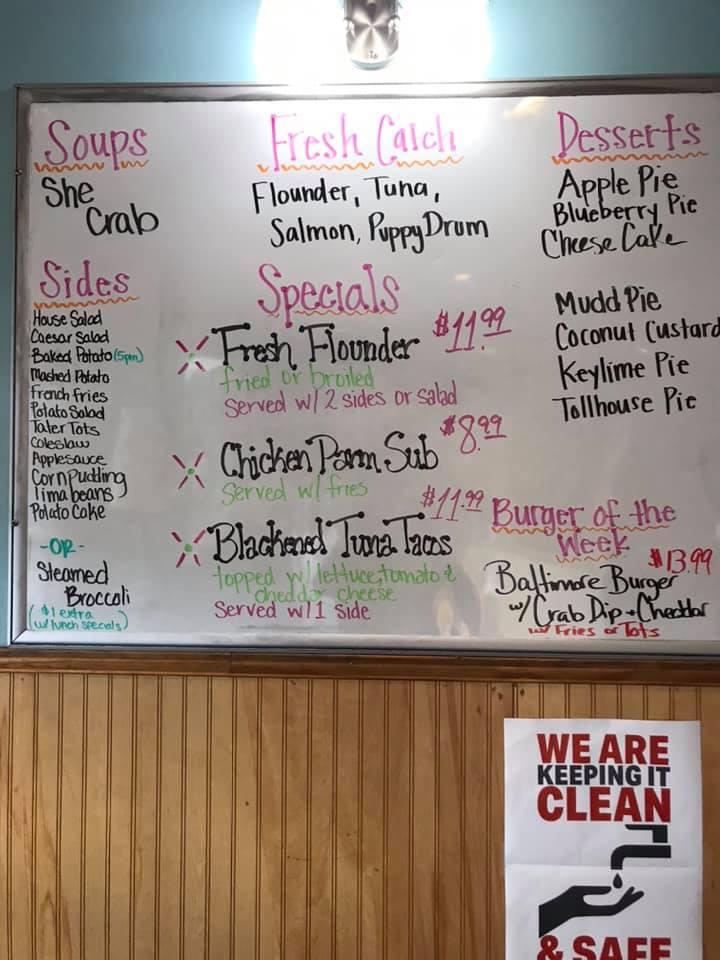 Soups
She
Crab
Sides
House Salad
Caesar Salad
Baked Potato (5pm)
Mashed Potato
French Fries
Potato Salad
Tater Tots
Coleslaw
Applesauce
Corn pudding
lima beans
Potato Cake
-OR-
Steamed
Broccoli
($1 extra
w/ lunch specials)
Fresh Catch
Flounder, Tuna,
Salmon, Puppy Drum
Specials
Fresh Flounder $11.99
fried or broiled
Served w/ 2 sides or salad
Chicken Parm Sub $8.99
Served w/ fries
Blackened Tuna Tacos $11.99
topped w/ lettuce, tomato &
cheddar cheese
Served w/ 1 side
Desserts
Apple Pie
Blueberry Pie
Cheese Cake
Mudd Pie
Coconut Custard
Keylime Pie
Tollhouse Pie
Burger of the
Week $13.99
Baltimore Burger
w/ Crab Dip + Cheddar
w/ Fries or Tots
WE ARE
KEEPING IT
CLEAN
& SAFE